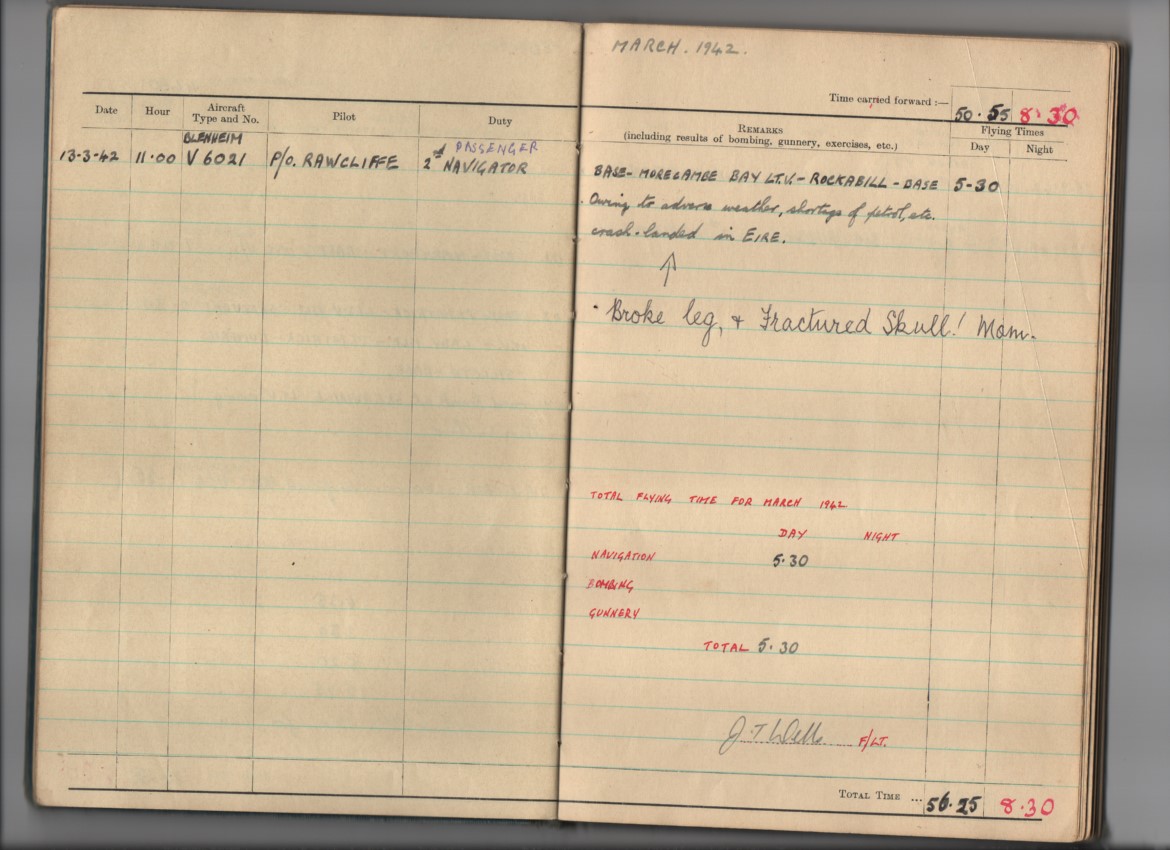 MARCH. 1942.
Time carried forward :— 50.55 8.30
Date Hour Aircraft Type and No. Pilot Duty
REMARKS
(including results of bombing, gunnery, exercises, etc.)
Flying Times
Day Night
BLENHEIM PASSENGER
13-3-42 11.00 V 6021 P/O. RAWCLIFFE 2nd NAVIGATOR
BASE - MORECAMBE BAY LT.V. - ROCKABILL - BASE 5-30
Owing to adverse weather, shortage of petrol, etc.
crash-landed in EIRE.
↑
Broke leg, + Fractured Skull! Mom.
TOTAL FLYING TIME FOR MARCH 1942
DAY NIGHT
NAVIGATION 5.30
BOMBING
GUNNERY
TOTAL 5.30
J. T. Wells F/LT.
TOTAL TIME ... 56.25 8.30